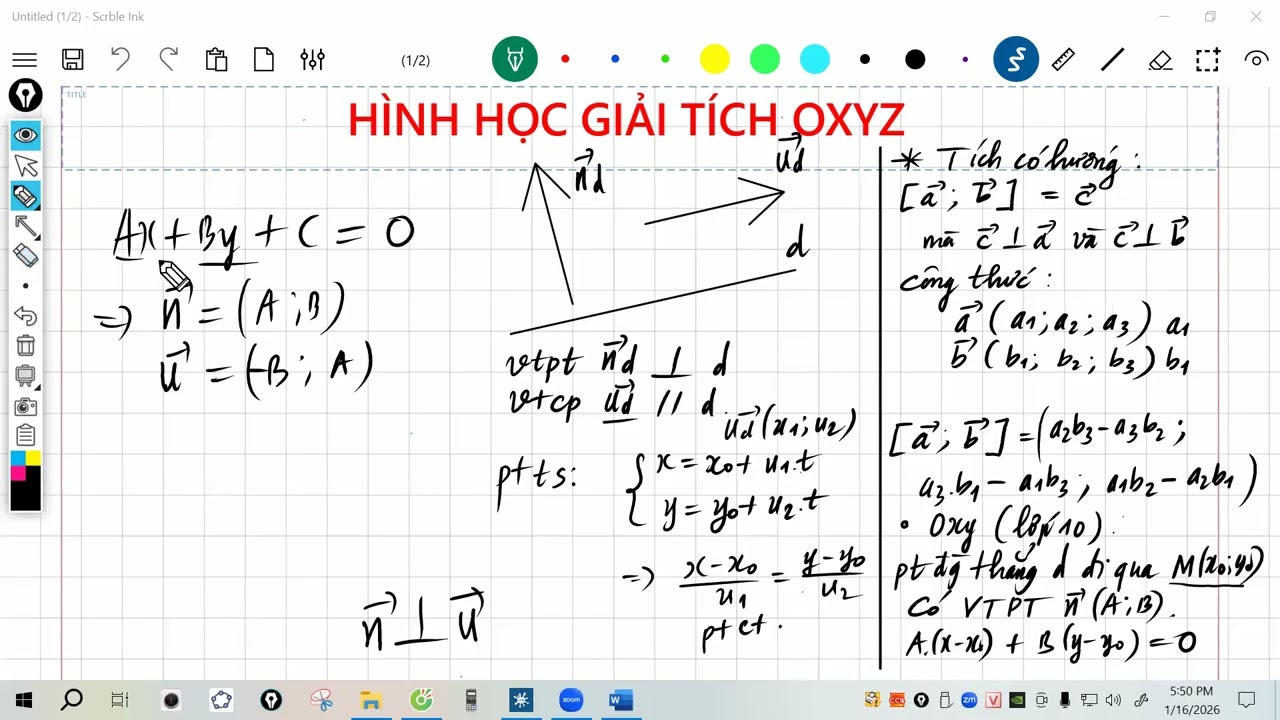 Untitled (1/2) - Scrble Ink
(1/2)
TITLE
HÌNH HỌC GIẢI TÍCH OXYZ
Ax + By + C = 0
=> n⃗ = (A ; B)
u⃗ = (-B ; A)
n⃗ ⊥ u⃗
n⃗d
u⃗d
d
vtpt n⃗d ⊥ d
vtcp u⃗d // d
u⃗d (u1; u2)
ptts:
x = x0 + u1.t
y = y0 + u2.t
=> (x - x0)/u1 = (y - y0)/u2
ptct.
* Tích có hướng :
[a⃗ ; b⃗] = c⃗
mà c⃗ ⊥ a⃗ và c⃗ ⊥ b⃗
công thức :
a⃗ (a1; a2; a3) a1
b⃗ (b1; b2; b3) b1
[a⃗ ; b⃗] = (a2b3 - a3b2 ;
a3.b1 - a1b3 ; a1b2 - a2b1)
• Oxy (lớp 10)
pt đg thẳng d đi qua M(x0; y0)
có VTPT n⃗ (A; B).
A.(x - x0) + B (y - y0) = 0
zoom
zm
5:50 PM
1/16/2026